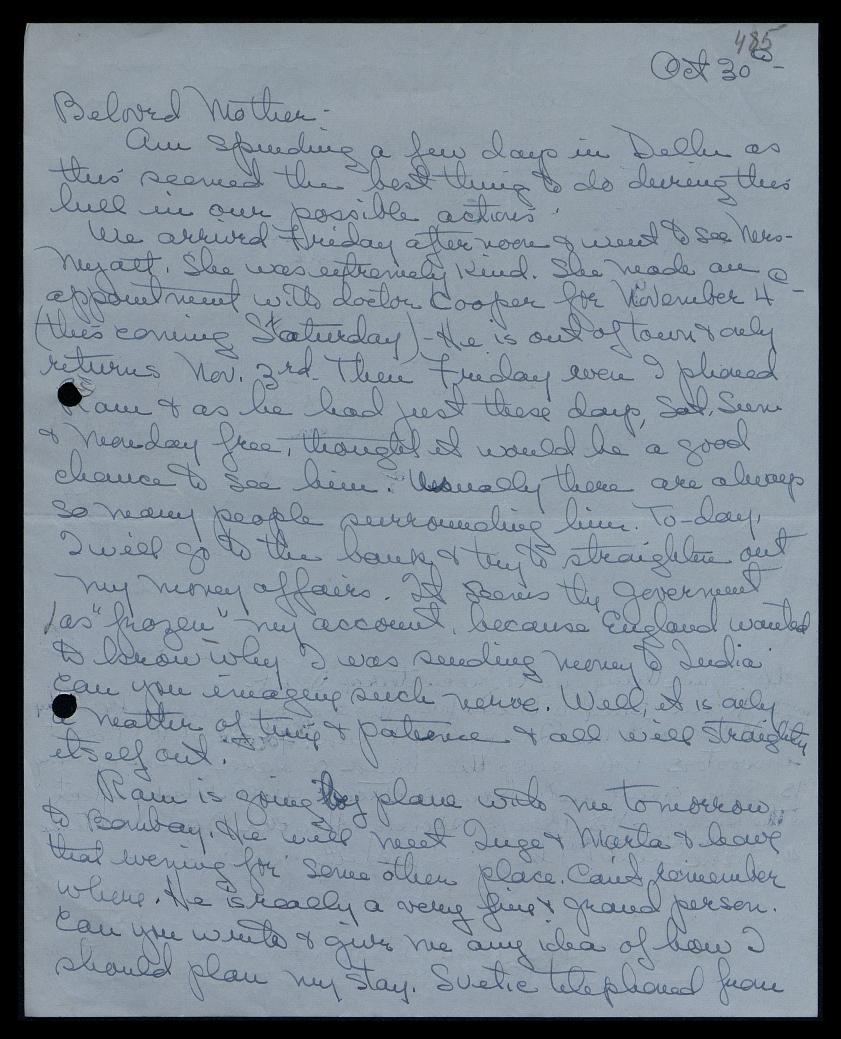 485
Oct 30th -
Beloved Mother -
Am spending a few days in Delhi as
this seemed the best thing to do during this
lull in our possible actions.
We arrived Friday afternoon & went to see Mrs-
Myatt. She was extremely kind. She made an
appointment with doctor Cooper for November 4th -
(this coming Saturday) - He is out of town & only
returns Nov. 3rd. Then Friday even I phoned
Ram & as he had just these days, Sat. Sun
& Monday free, thought it would be a good
chance to see him. Usually there are always
so many people surrounding him. To-day,
I will go to the bank & try to straighten out
my money affairs. It seems the goverment
has "frozen" my account, because England wanted
to know why I was sending money to India
Can you imagine such nerve. Well, it is only
a matter of time & patience & all will straighten
itself out.
Ram is going by plane with me tomorrow
to Bombay. He will meet Inge & Marta & leave
that evening for some other place. Can't remember
where. He is really a very fine & grand person.
Can you write & give me any idea of how I
should plan my stay. Svetic telephoned from